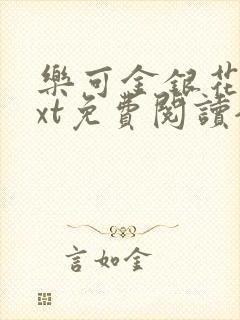 樂可金銀花
xt免費閱讀
言如金